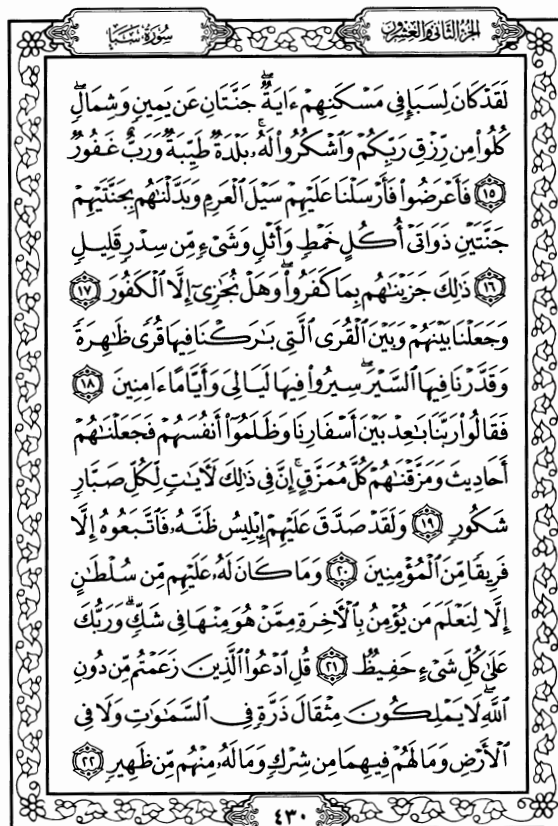 الجزء الثاني والعشرون
سورة سبأ
لَقَدْ كَانَ لِسَبَإٍ فِي مَسْكَنِهِمْ ءَايَةٌ ۖ جَنَّتَانِ عَن يَمِينٍ وَشِمَالٍ ۖ
كُلُوا۟ مِن رِّزْقِ رَبِّكُمْ وَٱشْكُرُوا۟ لَهُۥ ۚ بَلْدَةٌ طَيِّبَةٌ وَرَبٌّ غَفُورٌ
﴿١٥﴾ فَأَعْرَضُوا۟ فَأَرْسَلْنَا عَلَيْهِمْ سَيْلَ ٱلْعَرِمِ وَبَدَّلْنَٰهُم بِجَنَّتَيْهِمْ
جَنَّتَيْنِ ذَوَاتَىْ أُكُلٍ خَمْطٍ وَأَثْلٍ وَشَىْءٍ مِّن سِدْرٍ قَلِيلٍ
﴿١٦﴾ ذَٰلِكَ جَزَيْنَٰهُم بِمَا كَفَرُوا۟ ۖ وَهَلْ نُجَٰزِىٓ إِلَّا ٱلْكَفُورَ ﴿١٧﴾
وَجَعَلْنَا بَيْنَهُمْ وَبَيْنَ ٱلْقُرَى ٱلَّتِى بَٰرَكْنَا فِيهَا قُرًى ظَٰهِرَةً
وَقَدَّرْنَا فِيهَا ٱلسَّيْرَ ۖ سِيرُوا۟ فِيهَا لَيَالِىَ وَأَيَّامًا ءَامِنِينَ ﴿١٨﴾
فَقَالُوا۟ رَبَّنَا بَٰعِدْ بَيْنَ أَسْفَارِنَا وَظَلَمُوٓا۟ أَنفُسَهُمْ فَجَعَلْنَٰهُمْ
أَحَادِيثَ وَمَزَّقْنَٰهُمْ كُلَّ مُمَزَّقٍ ۚ إِنَّ فِى ذَٰلِكَ لَءَايَٰتٍ لِّكُلِّ صَبَّارٍ
شَكُورٍ ﴿١٩﴾ وَلَقَدْ صَدَّقَ عَلَيْهِمْ إِبْلِيسُ ظَنَّهُۥ فَٱتَّبَعُوهُ إِلَّا
فَرِيقًا مِّنَ ٱلْمُؤْمِنِينَ ﴿٢٠﴾ وَمَا كَانَ لَهُۥ عَلَيْهِم مِّن سُلْطَٰنٍ
إِلَّا لِنَعْلَمَ مَن يُؤْمِنُ بِٱلْءَاخِرَةِ مِمَّنْ هُوَ مِنْهَا فِى شَكٍّ ۗ وَرَبُّكَ
عَلَىٰ كُلِّ شَىْءٍ حَفِيظٌ ﴿٢١﴾ قُلِ ٱدْعُوا۟ ٱلَّذِينَ زَعَمْتُم مِّن دُونِ
ٱللَّهِ ۖ لَا يَمْلِكُونَ مِثْقَالَ ذَرَّةٍ فِى ٱلسَّمَٰوَٰتِ وَلَا فِى
ٱلْأَرْضِ وَمَا لَهُمْ فِيهِمَا مِن شِرْكٍ وَمَا لَهُۥ مِنْهُم مِّن ظَهِيرٍ ﴿٢٢﴾
٤٣٠